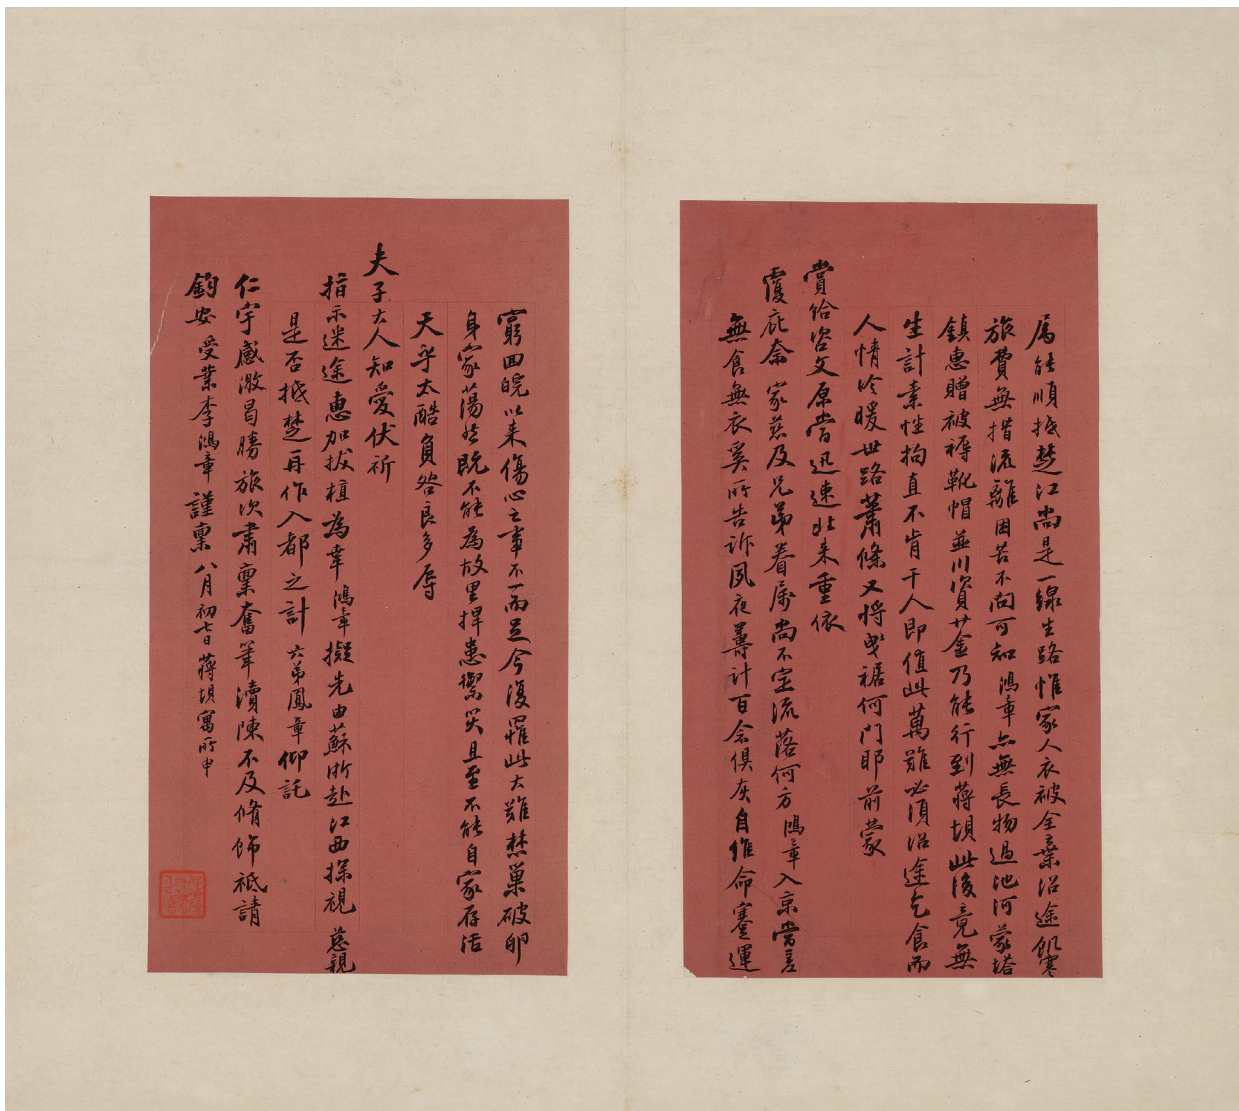 屬能順抵楚江尚是一線生路惟家人衣被全棄沿途飢寒
旅費無措流離困苦不問可知鴻章亦無長物過池河蒙塔
鎮惠贈被褥靴帽並川資廿金乃能行到蔣壩此後竟無
生計素性拘直不肯干人即值此萬難必須沿途乞食而
人情冷暖世路蕭條又將曳裾何門耶前蒙
賞給咨文原當迅速北來重依
覆庇奈家慈及兄弟眷屬尚不定流落何方鴻章入京當差
無食無衣奚所告訴夙夜籌計百念俱灰自維命蹇運
窮回皖以來傷心之事不一而足今復罹此大難焚巢破卵
身家蕩然既不能為故里捍患禦災且至不能自家存活
天乎太酷負咎良多辱
夫子大人知愛伏祈
指示迷途惠加拔植為幸鴻章擬先由蘇浙赴江西探視慈親
是否抵楚再作入都之計六弟鳳章仰託
仁宇感激曷勝旅次肅稟奮筆瀆陳不及脩飾祗請
鈞安受業李鴻章謹稟八月初七日蔣壩寓所申